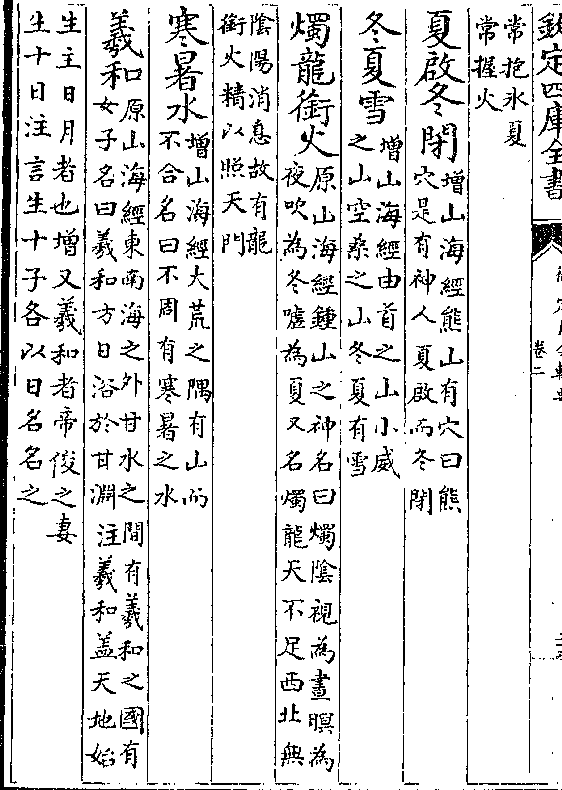 欽定四庫全書
卷二
常抱氷夏
常握火
夏啟冬閉 增山海經熊山有穴曰熊
穴是有神人夏啟而冬閉
冬夏雪 增山海經由首之山小威
之山空桑之山冬夏有雪
燭龍銜火 原山海經鍾山之神名曰燭陰視為晝暝為
夜吹為冬噓為夏又名燭龍天不足西北無
陰陽消息故有龍
銜火精以照天門
寒暑水 增山海經大荒之隅有山而
不合名曰不周有寒暑之水
羲和 原山海經東南海之外甘水之間有羲和之國有
女子名曰羲和方日浴於甘淵 注羲和盖天地始
生主日月者也增又羲和者帝俊之妻
生十日注言生十子各以日名名之